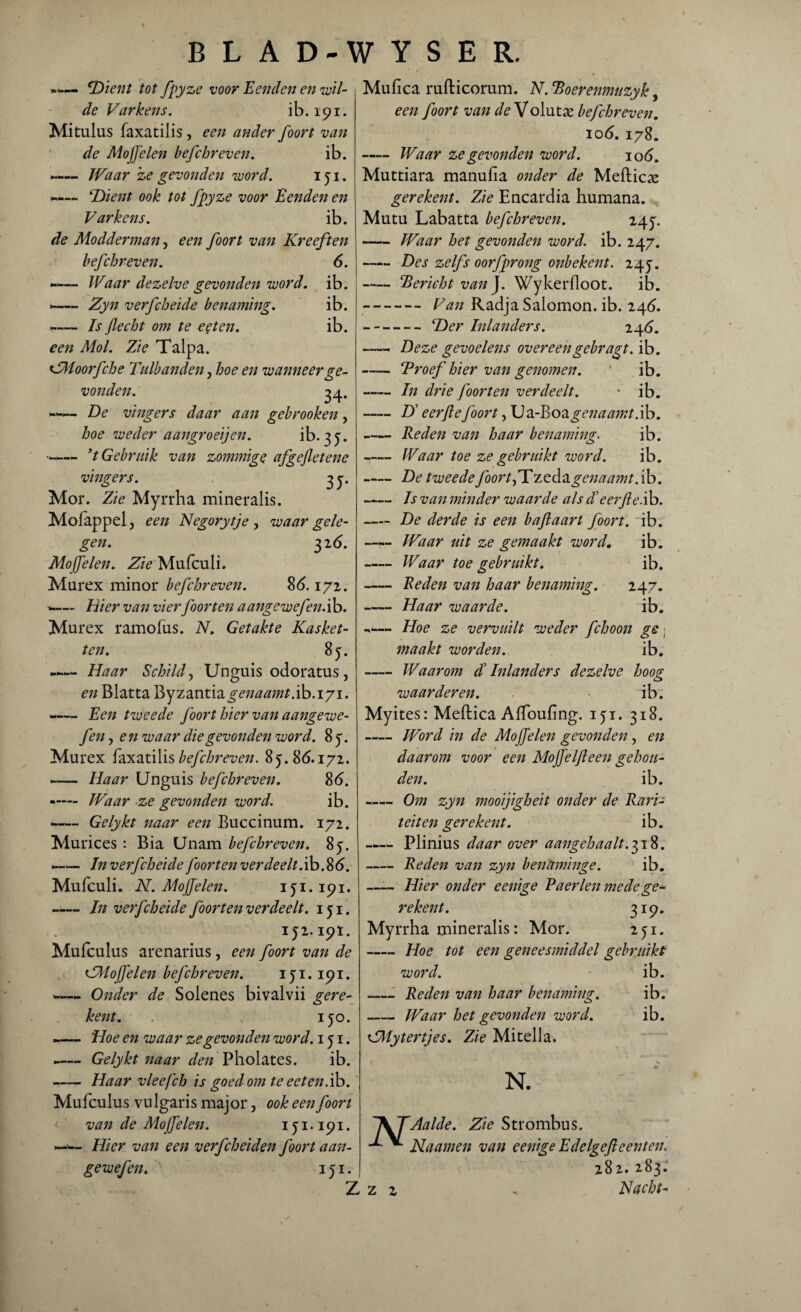 BLAD-WYSER.
—— Dient tot ſpyze voor Eenden en wil-
de Varkens. ib. 191.
Mitulus ſaxatilis, een ander ſoort van
de Moſſelen beſchreven. ib.
—— Waar ze gevonden word. 151.
—— Dient ook tot ſpyze voor Eenden en
Varkens. ib.
de Modderman, een ſoort van Kreeften
beſchreven. 6.
—— Waar dezelve gevonden word. ib.
—— Zyn verſcheide benaming. ib.
—— Is ſlecht om te eeten. ib.
een Mol. Zie Talpa.
Moorſche Tulbanden, hoe en wanneer ge-
vonden. 34.
—— De vingers daar aan gebrooken,
hoe weder aangroeijen. ib. 35.
—— 't Gebruik van zommige afgeſletene
vingers. 35.
Mor. Zie Myrrha mineralis.
Moſappel, een Negorytje, waar gele-
gen. 326.
Moſſelen. Zie Muſculi.
Murex minor beſchreven. 86. 172.
—— Hier van vier ſoorten aangeweſen. ib.
Murex ramoſus. N. Getakte Kasket-
ten. 85.
—— Haar Schild, Unguis odoratus,
en Blatta Byzantia genaamt. ib. 171.
—— Een tweede ſoort hier van aangewe-
ſen, en waar die gevonden word. 85.
Murex ſaxatilis beſchreven. 85. 86. 172.
—— Haar Unguis beſchreven. 86.
—— Waar ze gevonden word. ib.
—— Gelykt naar een Buccinum. 172.
Murices: Bia Unam beſchreven. 85.
—— In verſcheide ſoorten verdeelt. ib. 86.
Muſculi. N. Moſſelen. 151. 191.
—— In verſcheide ſoorten verdeelt. 151.
152. 191.
Muſculus arenarius, een ſoort van de
Moſſelen beſchreven. 151. 191.
—— Onder de Solenes bivalvii gere-
kent. 150.
—— Hoe en waar ze gevonden word. 151.
—— Gelykt naar den Pholates. ib.
—— Haar vleeſch is goed om te eeten. ib.
Muſculus vulgaris major, ook een ſoort
van de Moſſelen. 151. 191.
—— Hier van een verſcheiden ſoort aan-
geweſen. 151.
Muſica ruſticorum. N. Boerenmuzyk,
een ſoort van de Volutæ beſchreven.
106. 178.
—— Waar ze gevonden word. 106.
Muttiara manuſia onder de Meſticæ
gerekent. Zie Encardia humana.
Mutu Labatta beſchreven. 245.
—— Waar het gevonden word. ib. 247.
—— Des zelfs oorſprong onbekent. 245.
—— Bericht van J. Wykerſloot. ib.
—— —— Van Radja Salomon. ib. 246.
—— —— Der Inlanders. 246.
—— Deze gevoelens overeengebragt. ib.
—— Proef hier van genomen. ib.
—— In drie ſoorten verdeelt. ib.
—— D' eerſte ſoort, Ua-Boa genaamt. ib.
—— Reden van haar benaming. ib.
—— Waar toe ze gebruikt word. ib.
—— De tweede ſoort, Tzeda genaamt. ib.
—— Is van minder waarde als d'eerſte. ib.
—— De derde is een baſtaart ſoort. ib.
—— Waar uit ze gemaakt word. ib.
—— Waar toe gebruikt. ib.
—— Reden van haar benaming. 247.
—— Haar waarde. ib.
—— Hoe ze vervuilt weder ſchoon ge
maakt worden. ib.
—— Waarom d' Inlanders dezelve hoog
waarderen. ib.
Myites: Meſtica Aſſouſing. 151. 318.
—— Word in de Moſſelen gevonden, en
daarom voor een Moſſelſteen gehou-
den. ib.
—— Om zyn mooijigheit onder de Rari-
teiten gerekent. ib.
—— Plinius daar over aangehaalt. 318.
—— Reden van zyn benaminge. ib.
—— Hier onder eenige Paerlen mede ge-
rekent. 319.
Myrrha mineralis: Mor. 251.
—— Hoe tot een geneesmiddel gebruikt
word. ib.
—— Reden van haar benaming. ib.
—— Waar het gevonden word. ib.
Mytertjes. Zie Mitella.
N.
NAalde. Zie Strombus.
Naamen van eenige Edelgeſteenten.
282. 283.
Zz 2 Nacht-